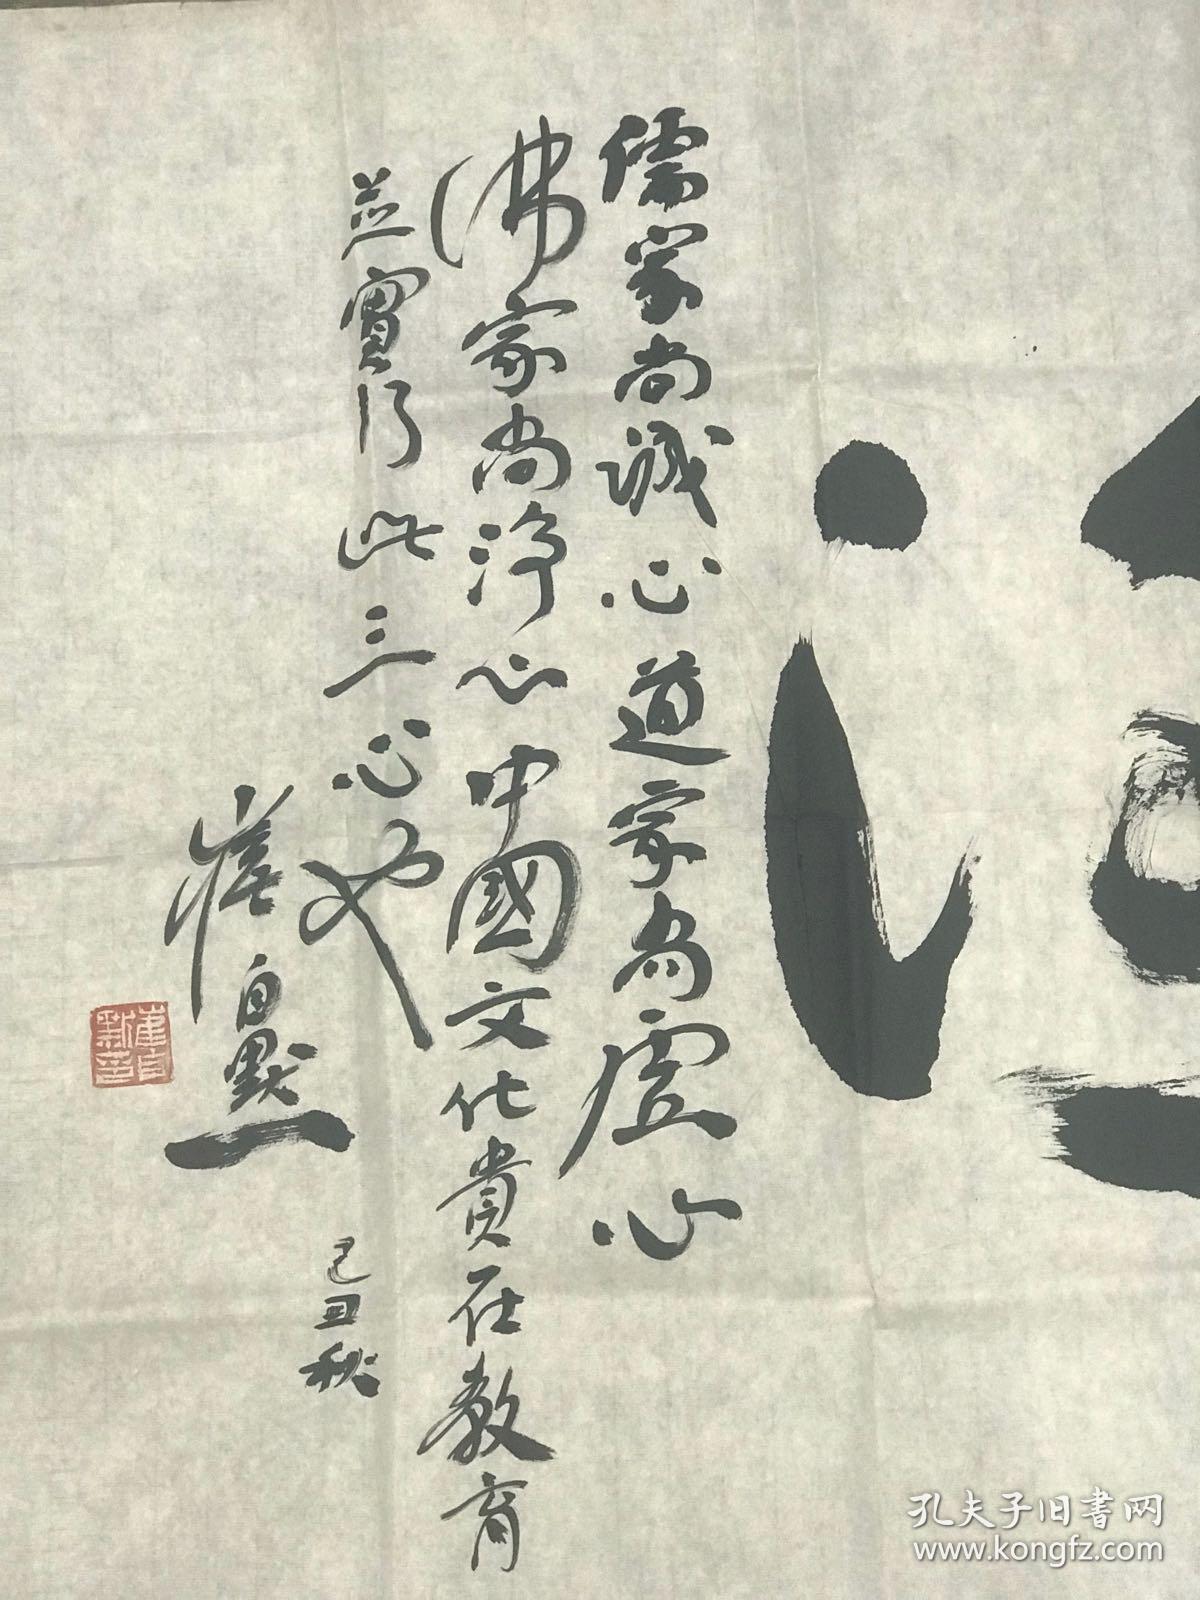 儒家尚诚心道家尚虚心
佛家尚淨心中國文化貴在教育
並實行此三心也
崔自默
己丑秋
孔夫子旧書网
www.kongfz.com